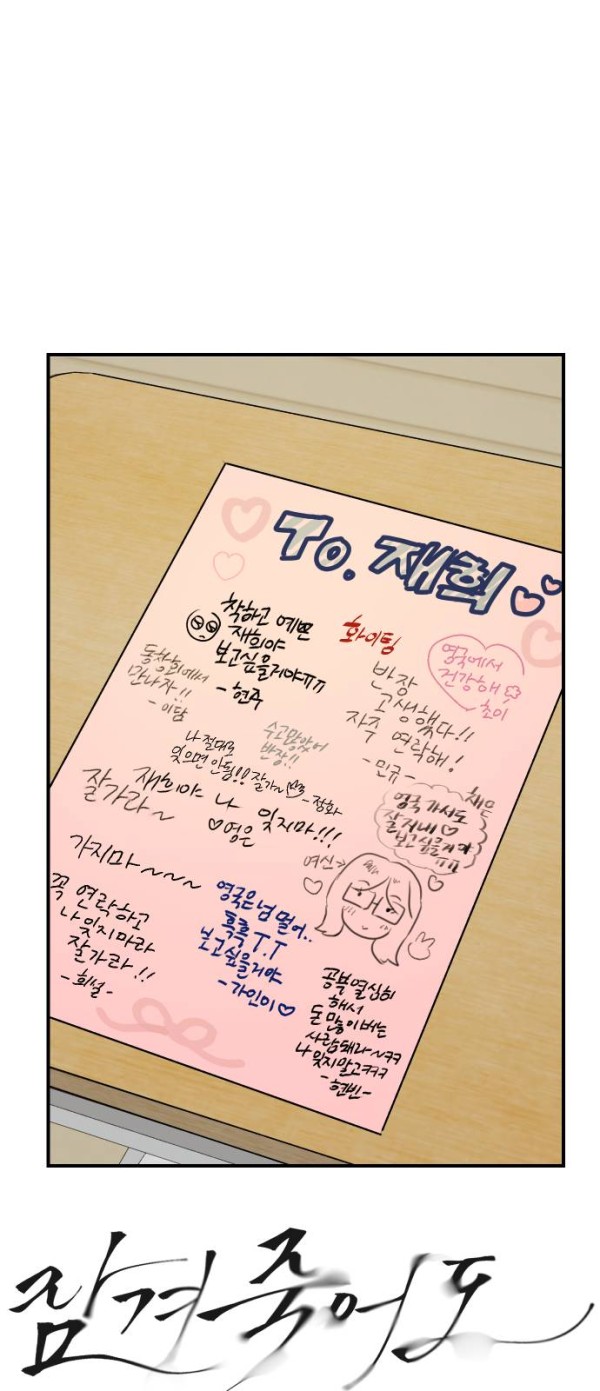 To. 재희
착하고 예쁜
재희야
보고싶을거야ㅠㅠ
- 현주
화이팅
영국에서
건강해
초이
동창회에서
만나자!!
- 이담
반장
고생했다!!
자주 연락해!
- 민규 -
수고많았어
반장!!
나 절대로
잊으면 안돼!! 잘가~
- 정화
잘가라~
재희야 나 잊지마!!!
♡영은
채은
영국 가서도
잘 지내♡
보고싶을거야
ㅠㅠ
여신
가지마~~~~
꼭 연락하고
나 잊지마라
잘가라!!
- 희설 -
영국은 넘 멀어..
흑흑 T.T
보고싶을거야
- 가인이♡
공부 열심히
해서
돈 많이 버는
사람돼라~ㅋㅋ
나 잊지말고ㅋㅋㅋ
- 현빈 -
잠겨죽어도